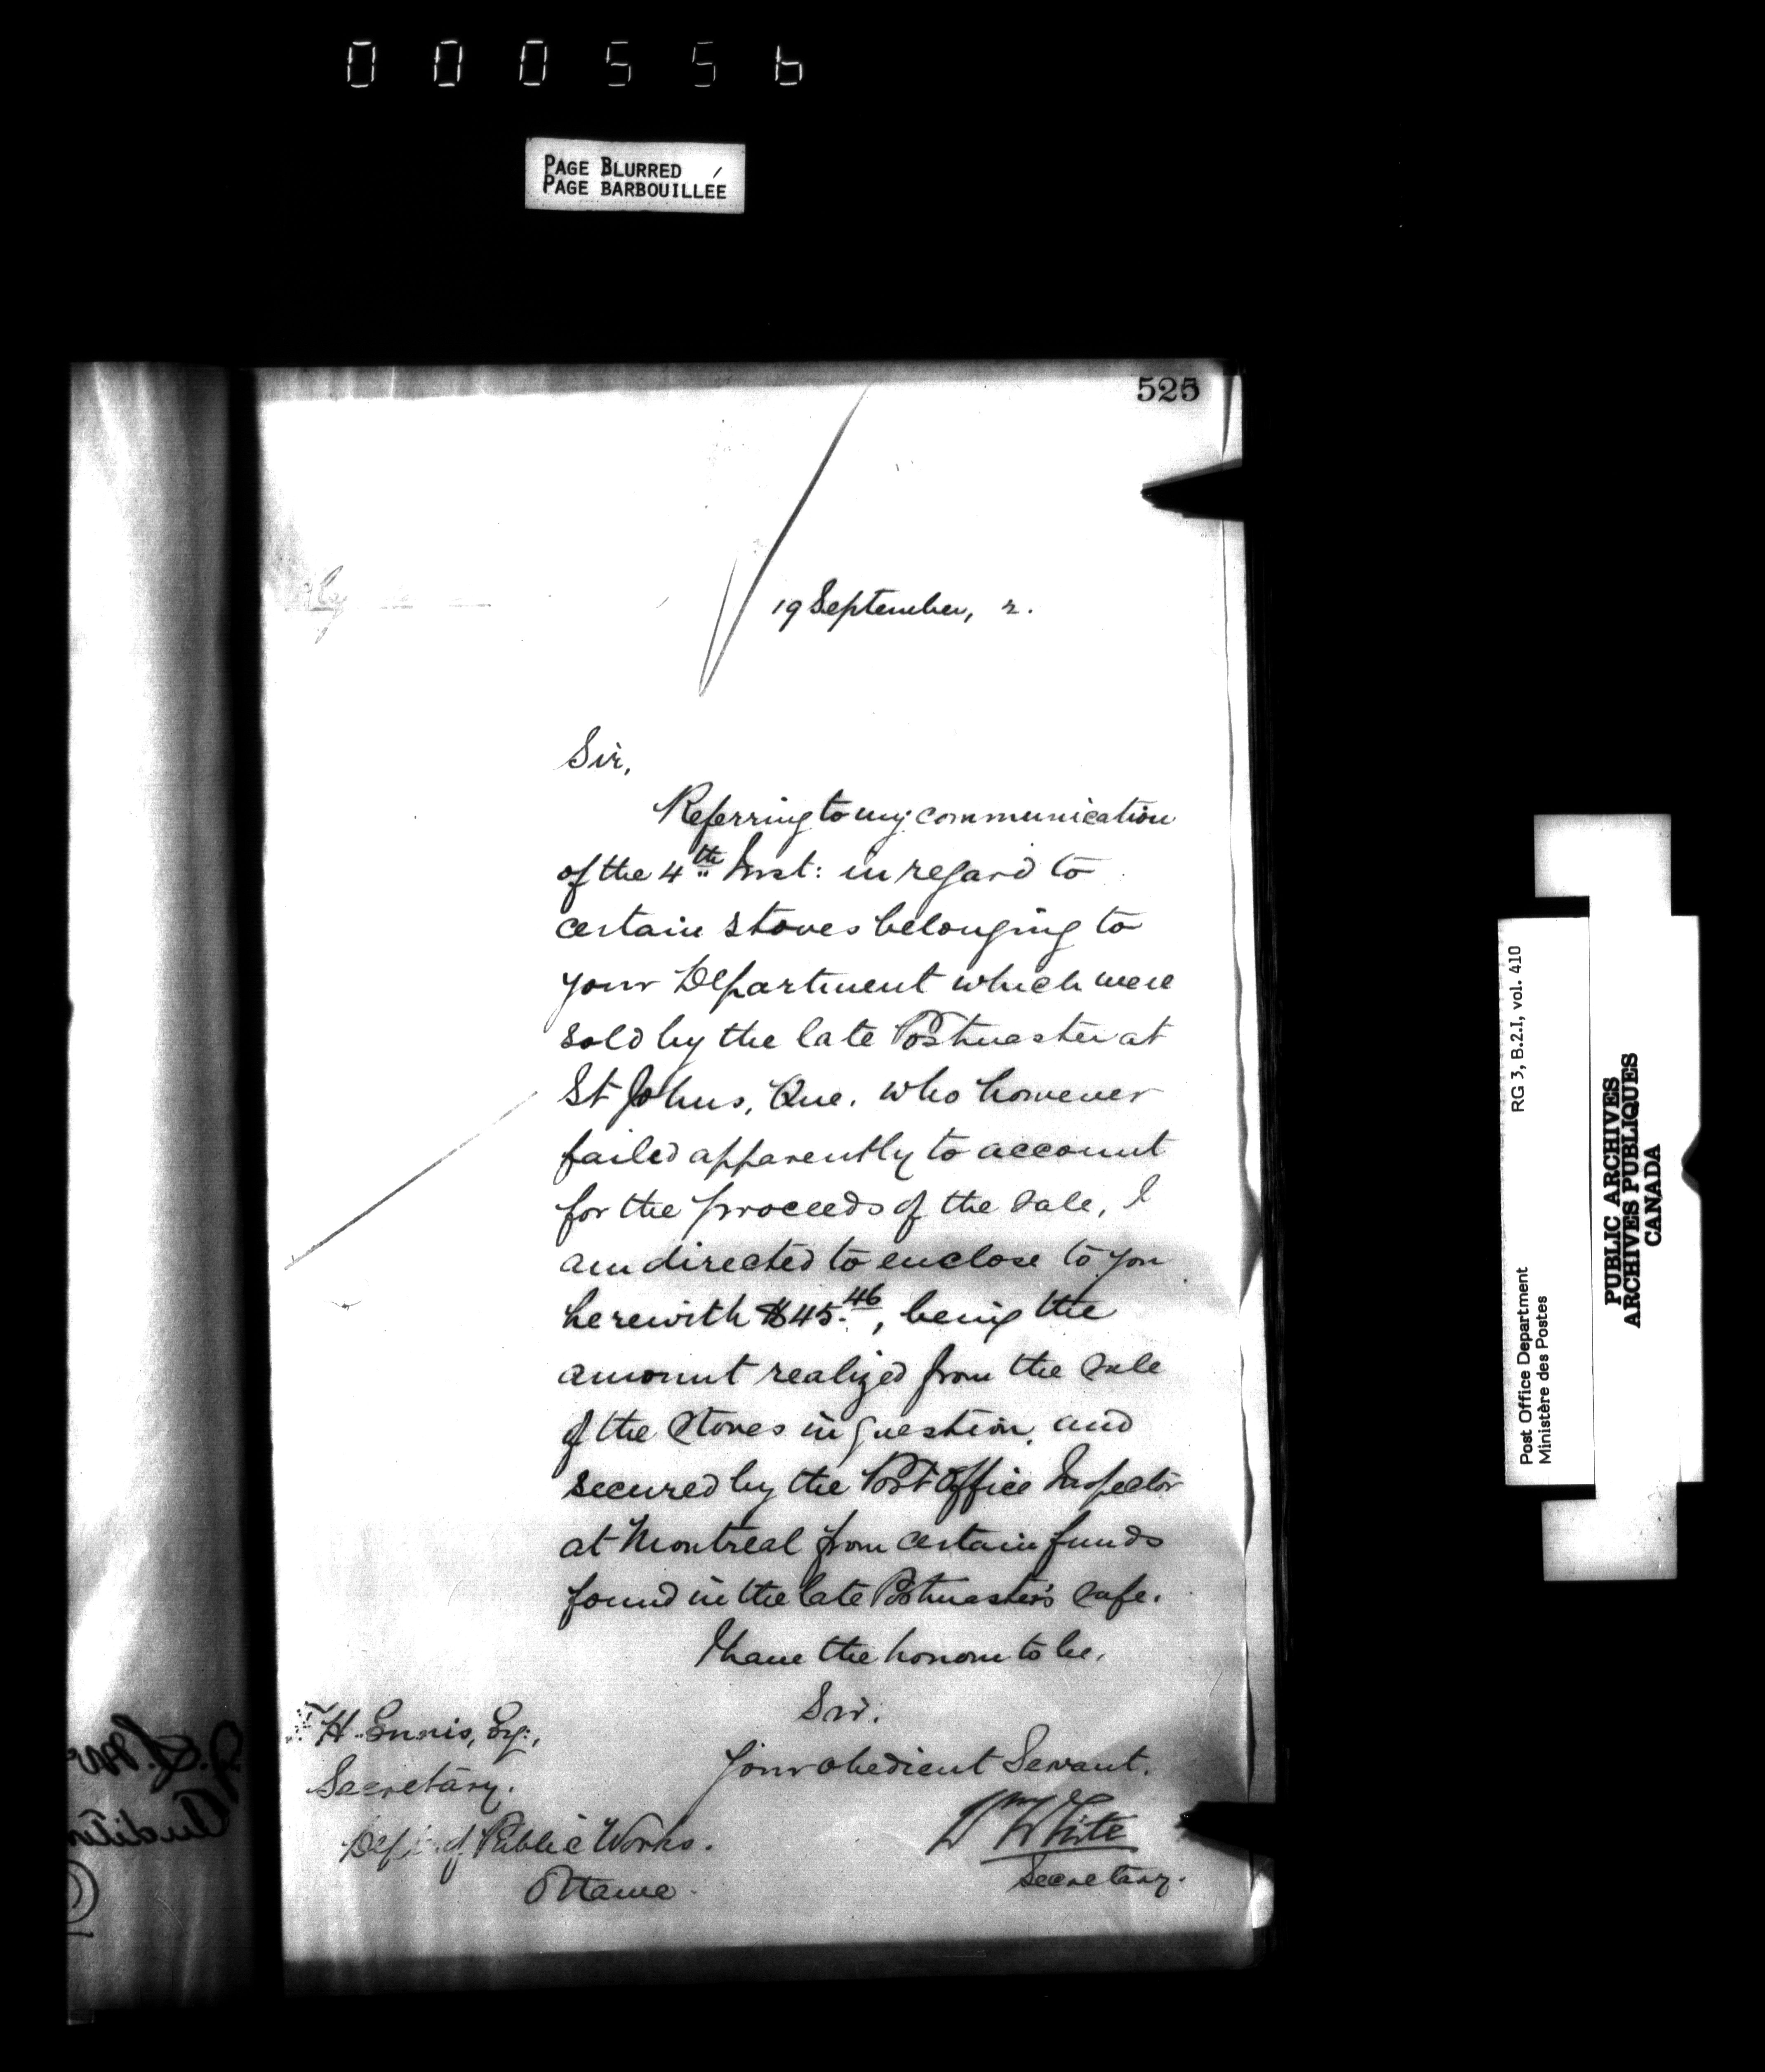 000556
PAGE BLURRED
PAGE BARBOUILLÉE
525
19 September, 2.
Sir,
Referring to my communication
of the 4th Inst: in regard to
certain stoves belonging to
your Department which were
sold by the late Postmaster at
St Johns, Que. who however
failed apparently to account
for the proceeds of the sale, I
am directed to enclose to you
herewith $45.46, being the
amount realized from the sale
of the stoves in question, and
secured by the Post Office Inspector
at Montreal from certain funds
found in the late Postmaster's safe.
I have the honour to be,
Sir.
Your obedient Servant.
Wm White
Secretary.
H. Ennis, Esq:,
Secretary.
Dept. of Public Works.
Ottawa.
RG 3, B.2.I, vol. 410
Post Office Department
Ministère des Postes
PUBLIC ARCHIVES
ARCHIVES PUBLIQUES
CANADA